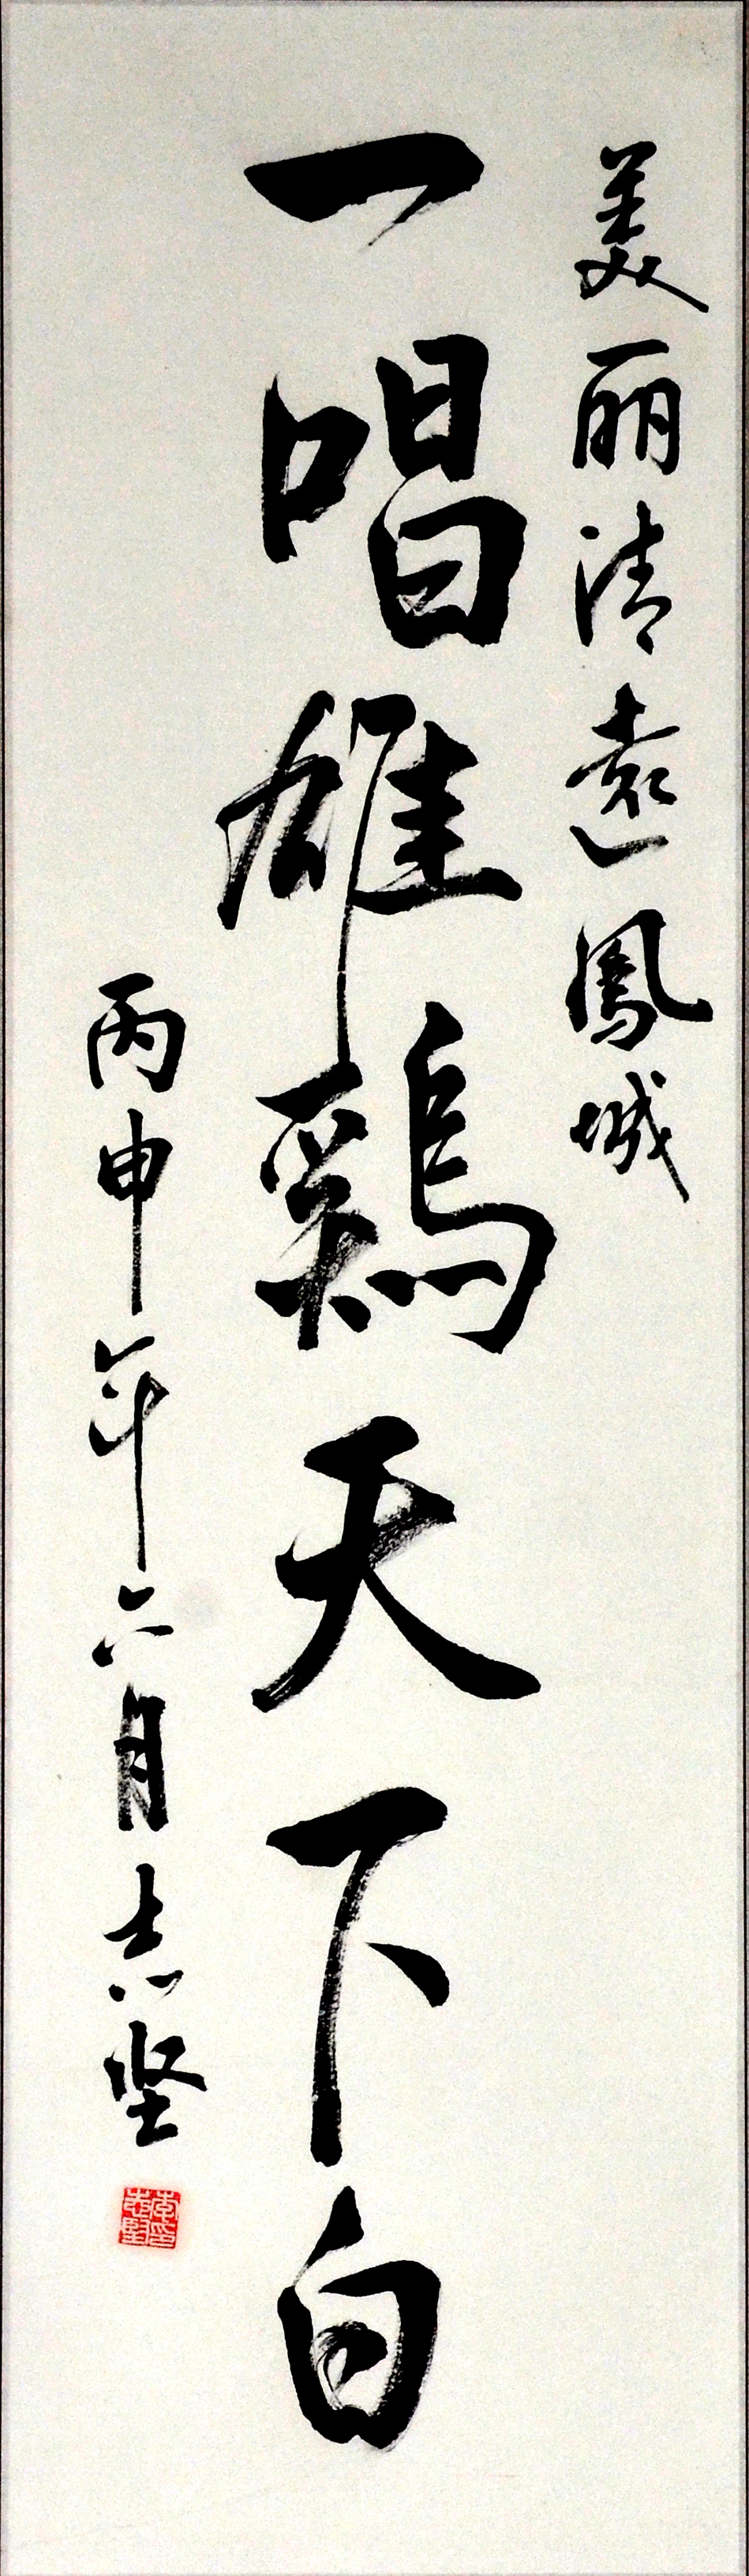 美丽清遠鳳城
一唱雄鷄天下白
丙申年六月志坚